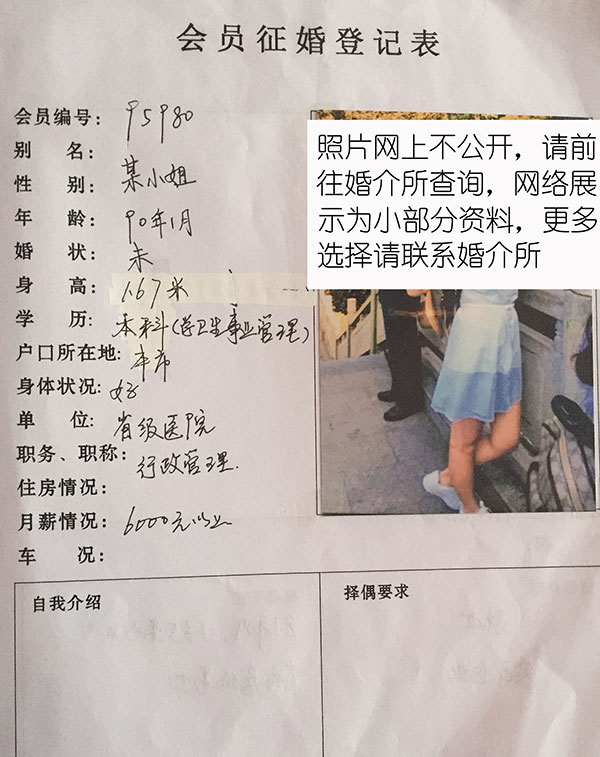 会员征婚登记表
会员编号：95980
别 名：
性 别：某小姐
年 龄：90年1月
婚 状：未
身 高：1.67米
学 历：本科(学卫生事业管理)
户口所在地：本市
身体状况：好
单 位：省级医院
职务、职称：行政管理.
住房情况：
月薪情况：6000元以上
车 况：
照片网上不公开，请前
往婚介所查询，网络展
示为小部分资料，更多
选择请联系婚介所
自我介绍
择偶要求